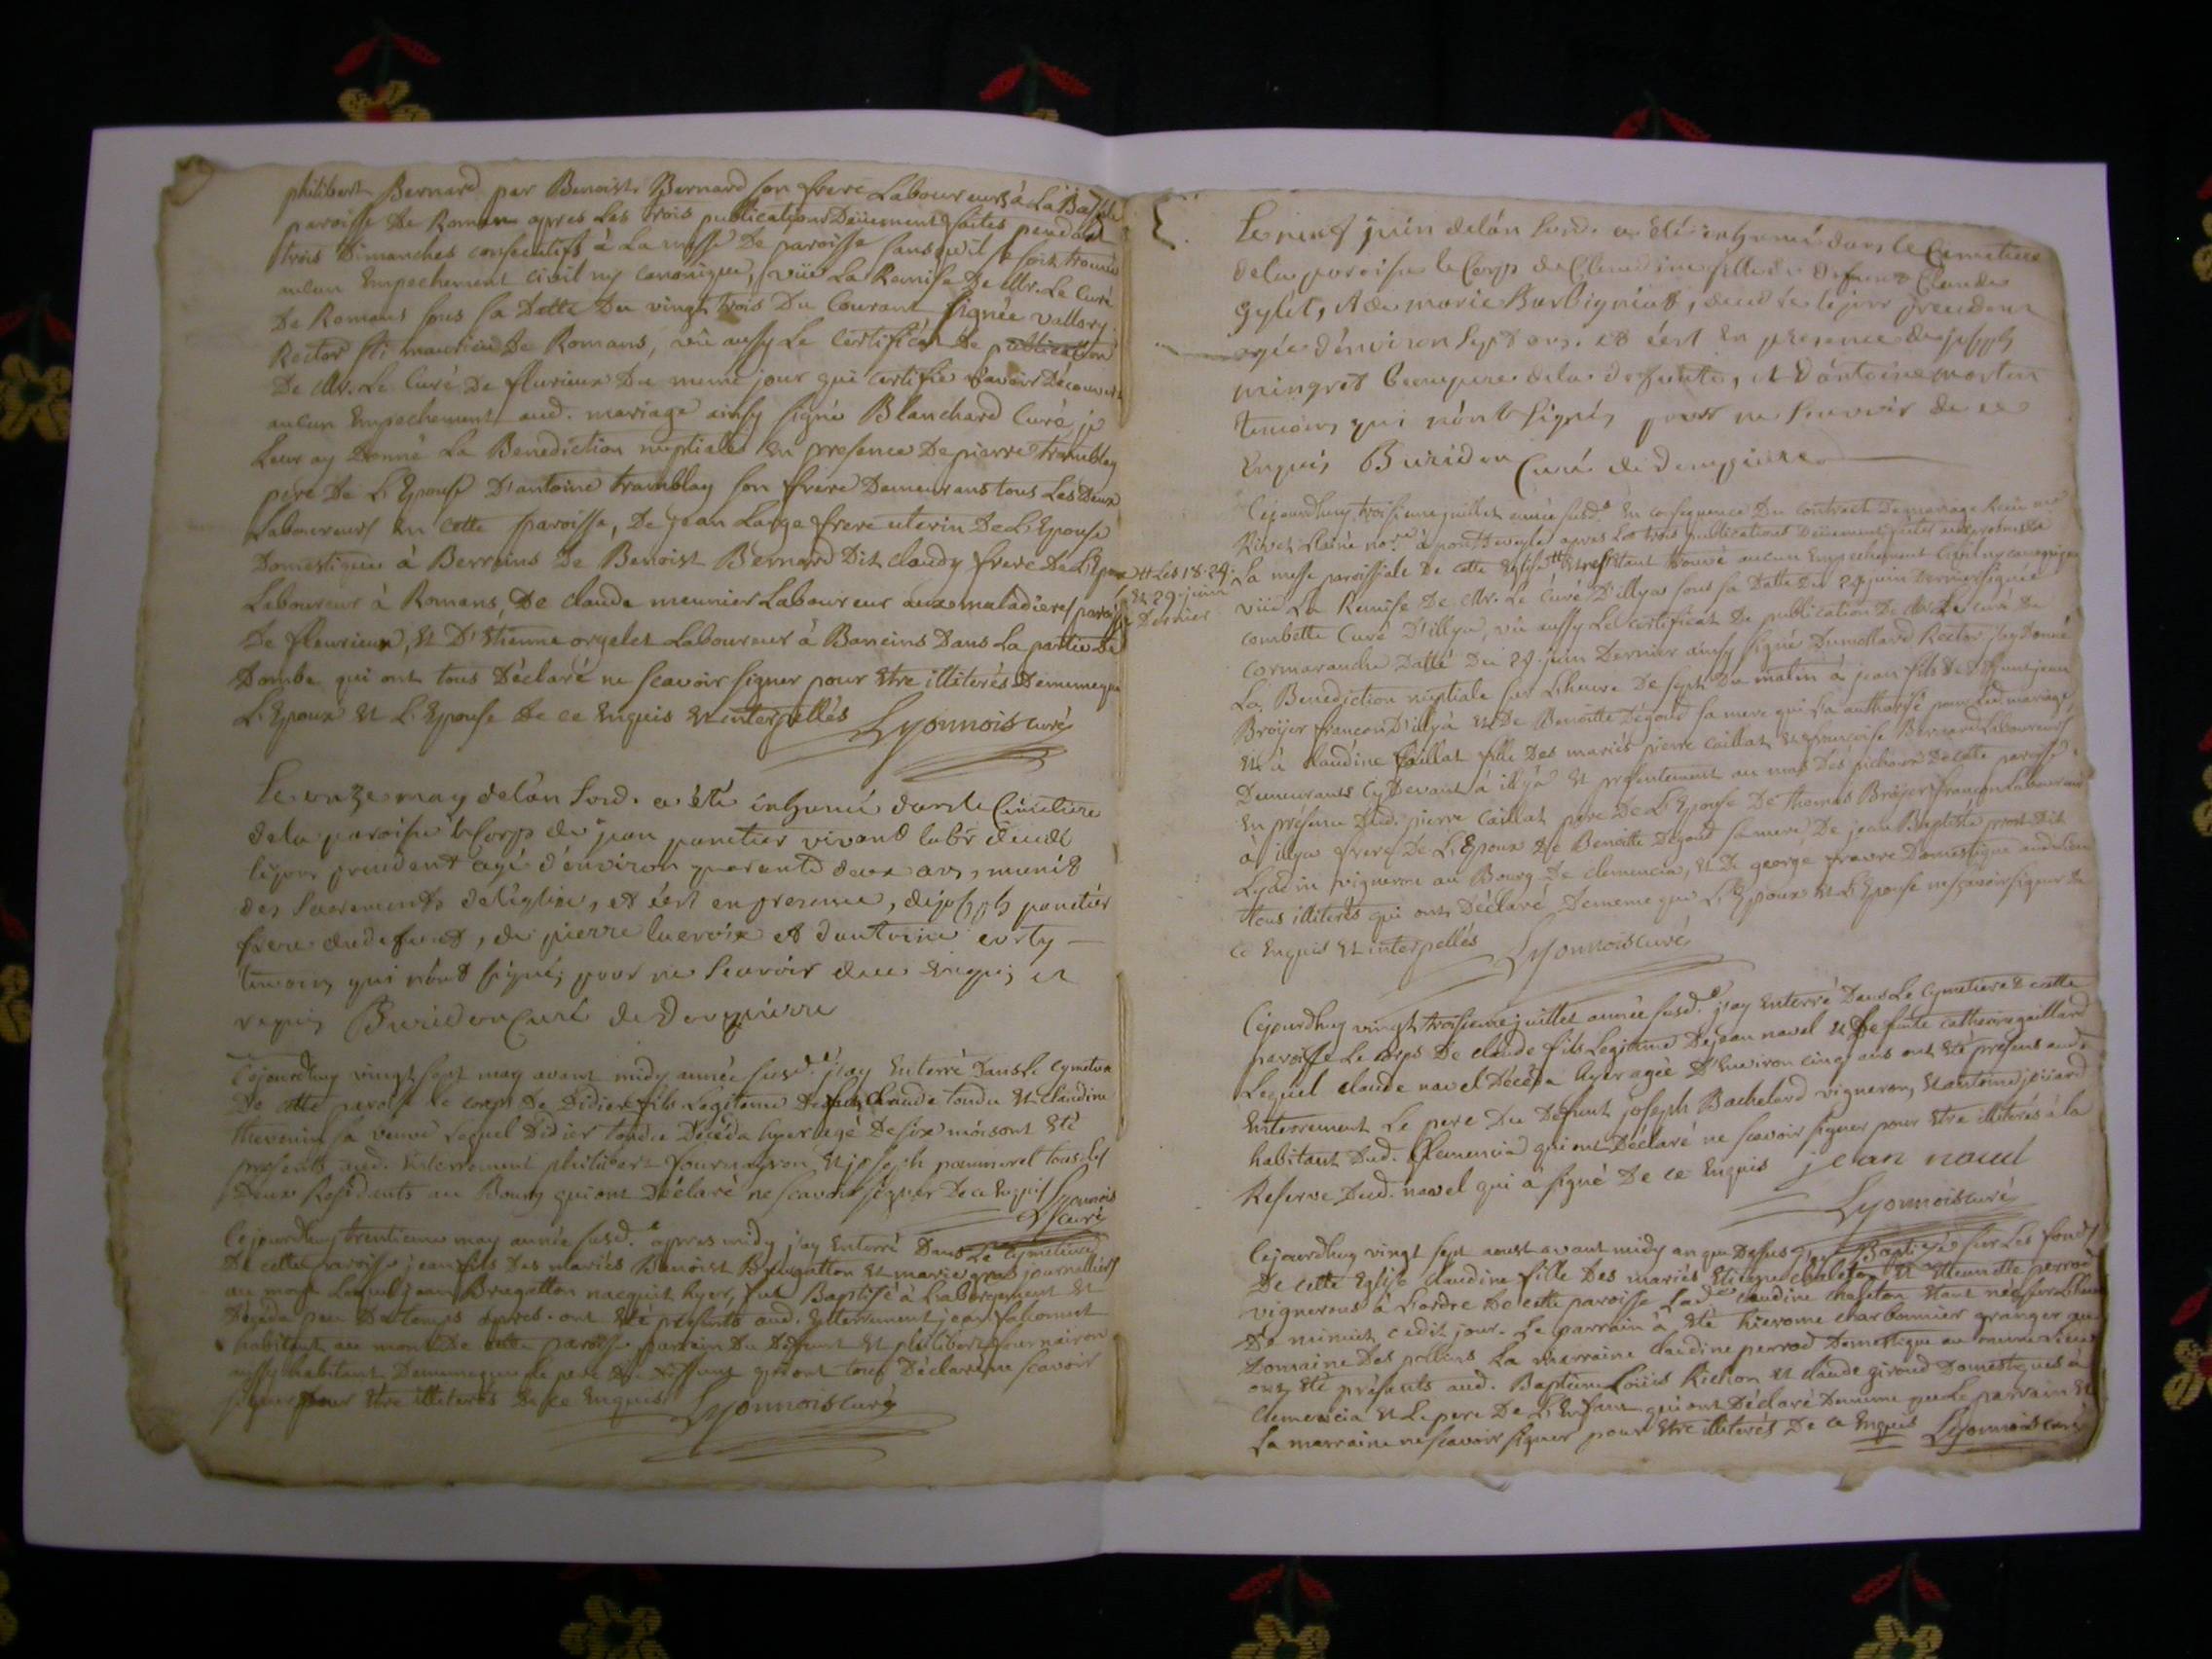 philibert Bernard par Benoist Bernard son frere Laboureurs à La
paroisse De Romans apres Les trois publications Düement faites pendant
trois Dimanches consecutifs à La messe De paroisse sans qu'il se soit trouvé
aucun Empechement civil ny canonique, vüe La Remise De Mr. Le Curé
De Romans sous sa Datte Du vingt trois Du Courant signée vallory
Rector sti mauricii De Romans, vû aussy Le certificat De publication
De Mr. Le Curé De flurieux Du meme jour qui certifie n'avoir Découvert
aucun Empechement aud. mariage ainsy signé Blanchard Curé, je
Leur ay Donné La Benediction nuptiale En presence De pierre tramblay
pere De L'Epouse D'antoine tramblay son frere Demeurans tous Les Deux
Laboureurs En cette paroisse, De jean Large frere uterin De L'Epouse
Domestique à Berreins De Benoist Bernard Dit claudy frere De L'Epoux
Laboureur à Romans, De claude meunier Laboureur aux maladieres paroisse
De fleurieux, Et D'Etienne orgelet Laboureur à Baneins Dans La partie De
Dombe qui ont tous Déclaré ne scavoir signer pour Etre illiterés Dememeque
L'Epoux Et L'Epouse De ce Enquis Et interpellés Lyonnois curé
Le onze may de l'an susd. a été inhumé dans le Cimetiere
de la paroisse le Corps de jean panetier vivant labr décédé
le jour precedent agé d'environ quarante deux ans, munit
des Sacrements de l'église, et c'est en presence, de joseph panetier
frere du defunt, de pierre lacroix et d'antoine
temoins qui n'ont signé, pour ne scavoir de ce enquis et
requis Buridon Curé de Dompierre
Cejourdhuy vingt sept may avant midy année susd.e j'ay Enterré Dans Le Cymetiere
De cette paroisse le corps De Didier fils Legitime De feu Claude tondu Et claudine
thevenin sa veuve Lequel Didier tondu Décéda hyer agé De six mois ont Eté
presents aud. Enterrement philibert fournayron Et joseph pommerel tous Les
Deux Residents au Bourg qui ont Déclaré ne scavoir signer De ce Enquis Lyonnois
curé
Cejourdhuy trentieme may année susd.e apres midy j'ay Enterré Dans Le Cymetiere
De cette paroisse jean fils Des mariés Benoist Brugatton Et marie gras journalliers
au mont Lequel jean Brugatton nacquit hyer, fut Baptisé à Et
Décéda peu De temps apres. ont Eté presents aud. Enterrement jean
habitant au mont De cette paroisse parrain Du Deffunt Et philibert fournairon
aussy habitant Dememeque Le pere Du Deffunt qui ont tous Déclaré ne scavoir
signer pour Etre illiterés De ce Enquis Lyonnois curé
Le neuf juin de l'an susd. a été inhumé dans le Cimetiere
de la paroisse le Corps de Claudine fille de defunt Claude
gylet, et de marie Barbigniat, decedée le jour precedent
agée d'environ sept ans. et c'est en presence de joseph
mingret beaupere de la defunte, et d'antoine morten
temoins qui n'ont signés pour ne scavoir de ce
enquis Buridon Curé de Dompierre
Cejourdhuy troisieme juillet année susd.e En consequence Du contract De mariage Reçu me
Rivet L'ainé no.re à pontdeveyle apres Les trois publications Düement faites
La messe paroissiale De cette Eglise # Et ne s'Etant trouvé aucun Empechement Civil ny canonique
# Les 18. 24.
Et 29. juin
Dernier
vüe La Remise De Mr. Le Curé D'illya sous sa Datte Du 29 juin Dernier signée
combette Curé D'illya, vû aussy Le certificat De publication De Mr. Le curé De
cormaranche Datté Du 29. juin Dernier ainsy signé Dumollard Rector j'ay Donné
La Benediction nuptiale sur L'heure De sept Du matin à jean fils De Deffunt jean
Broyer francon D'illya Et De Benoitte Dégoud sa mere qui l'a authorisé pour Led. mariage,
Et à claudine Caillat fille Des mariés pierre Caillat Et francoise Bernard Laboureurs
Demeurants Cy Devant à illya Et presentement au mas Des De cette paroisse.
En presence Dud. pierre Caillat pere De L'Epouse De thomas Broyer francon Laboureur
à illya frere De L'Epoux De Benoitte Dégoud sa mere De jean Baptiste prost Dit
vigneron au Bourg De clemencia, Et De george favre Domestique aud. Lieu
tous illiterés qui ont Déclaré Dememe que L'Epoux Et L'Epouse ne scavoir signer De
ce Enquis Et interpellés Lyonnois curé
Cejourdhuy vingt troisieme juillet année susd.e j'ay Enterré Dans Le Cymetiere De cette
paroisse Le corps De claude fils Legitime De jean navel Et Defunte catherine gaillard
Lequel claude navel Décéda hyer agée D'Environ cinq ans ont Eté presens aud.
Enterrement Le pere Du Defunt joseph Bachelard vigneron, Et antoine
habitant Dud. Clemencia qui ont Déclaré ne scavoir signer pour Etre illiterés à la
Reserve Dud. navel qui a signé De ce Enquis jean navel
Lyonnois curé
Cejourdhuy vingt sept aoust avant midy an que Dessus j'ay Baptisé sur Les fonds
De cette Eglise claudine fille Des mariés Etienne chaleton Et perrod
vignerons à L'ordre De cette paroisse Lad.e claudine chaleton Etant née sur L'heure
De minuit cedit jour. Le parrain à Eté hierome charbonnier granger au
Domaine Des pollius La marraine claudine perrod Domestique au meme Lieu
ont Eté présents aud. Bapteme Loüis Richon Et claude giroud Domestiques à
clemencia Et Le pere De L'Enfant qui ont Déclaré Dememe que Le parrain Et
La marraine ne scavoir signer pour Etre illiterés De ce Enquis Lyonnois curé